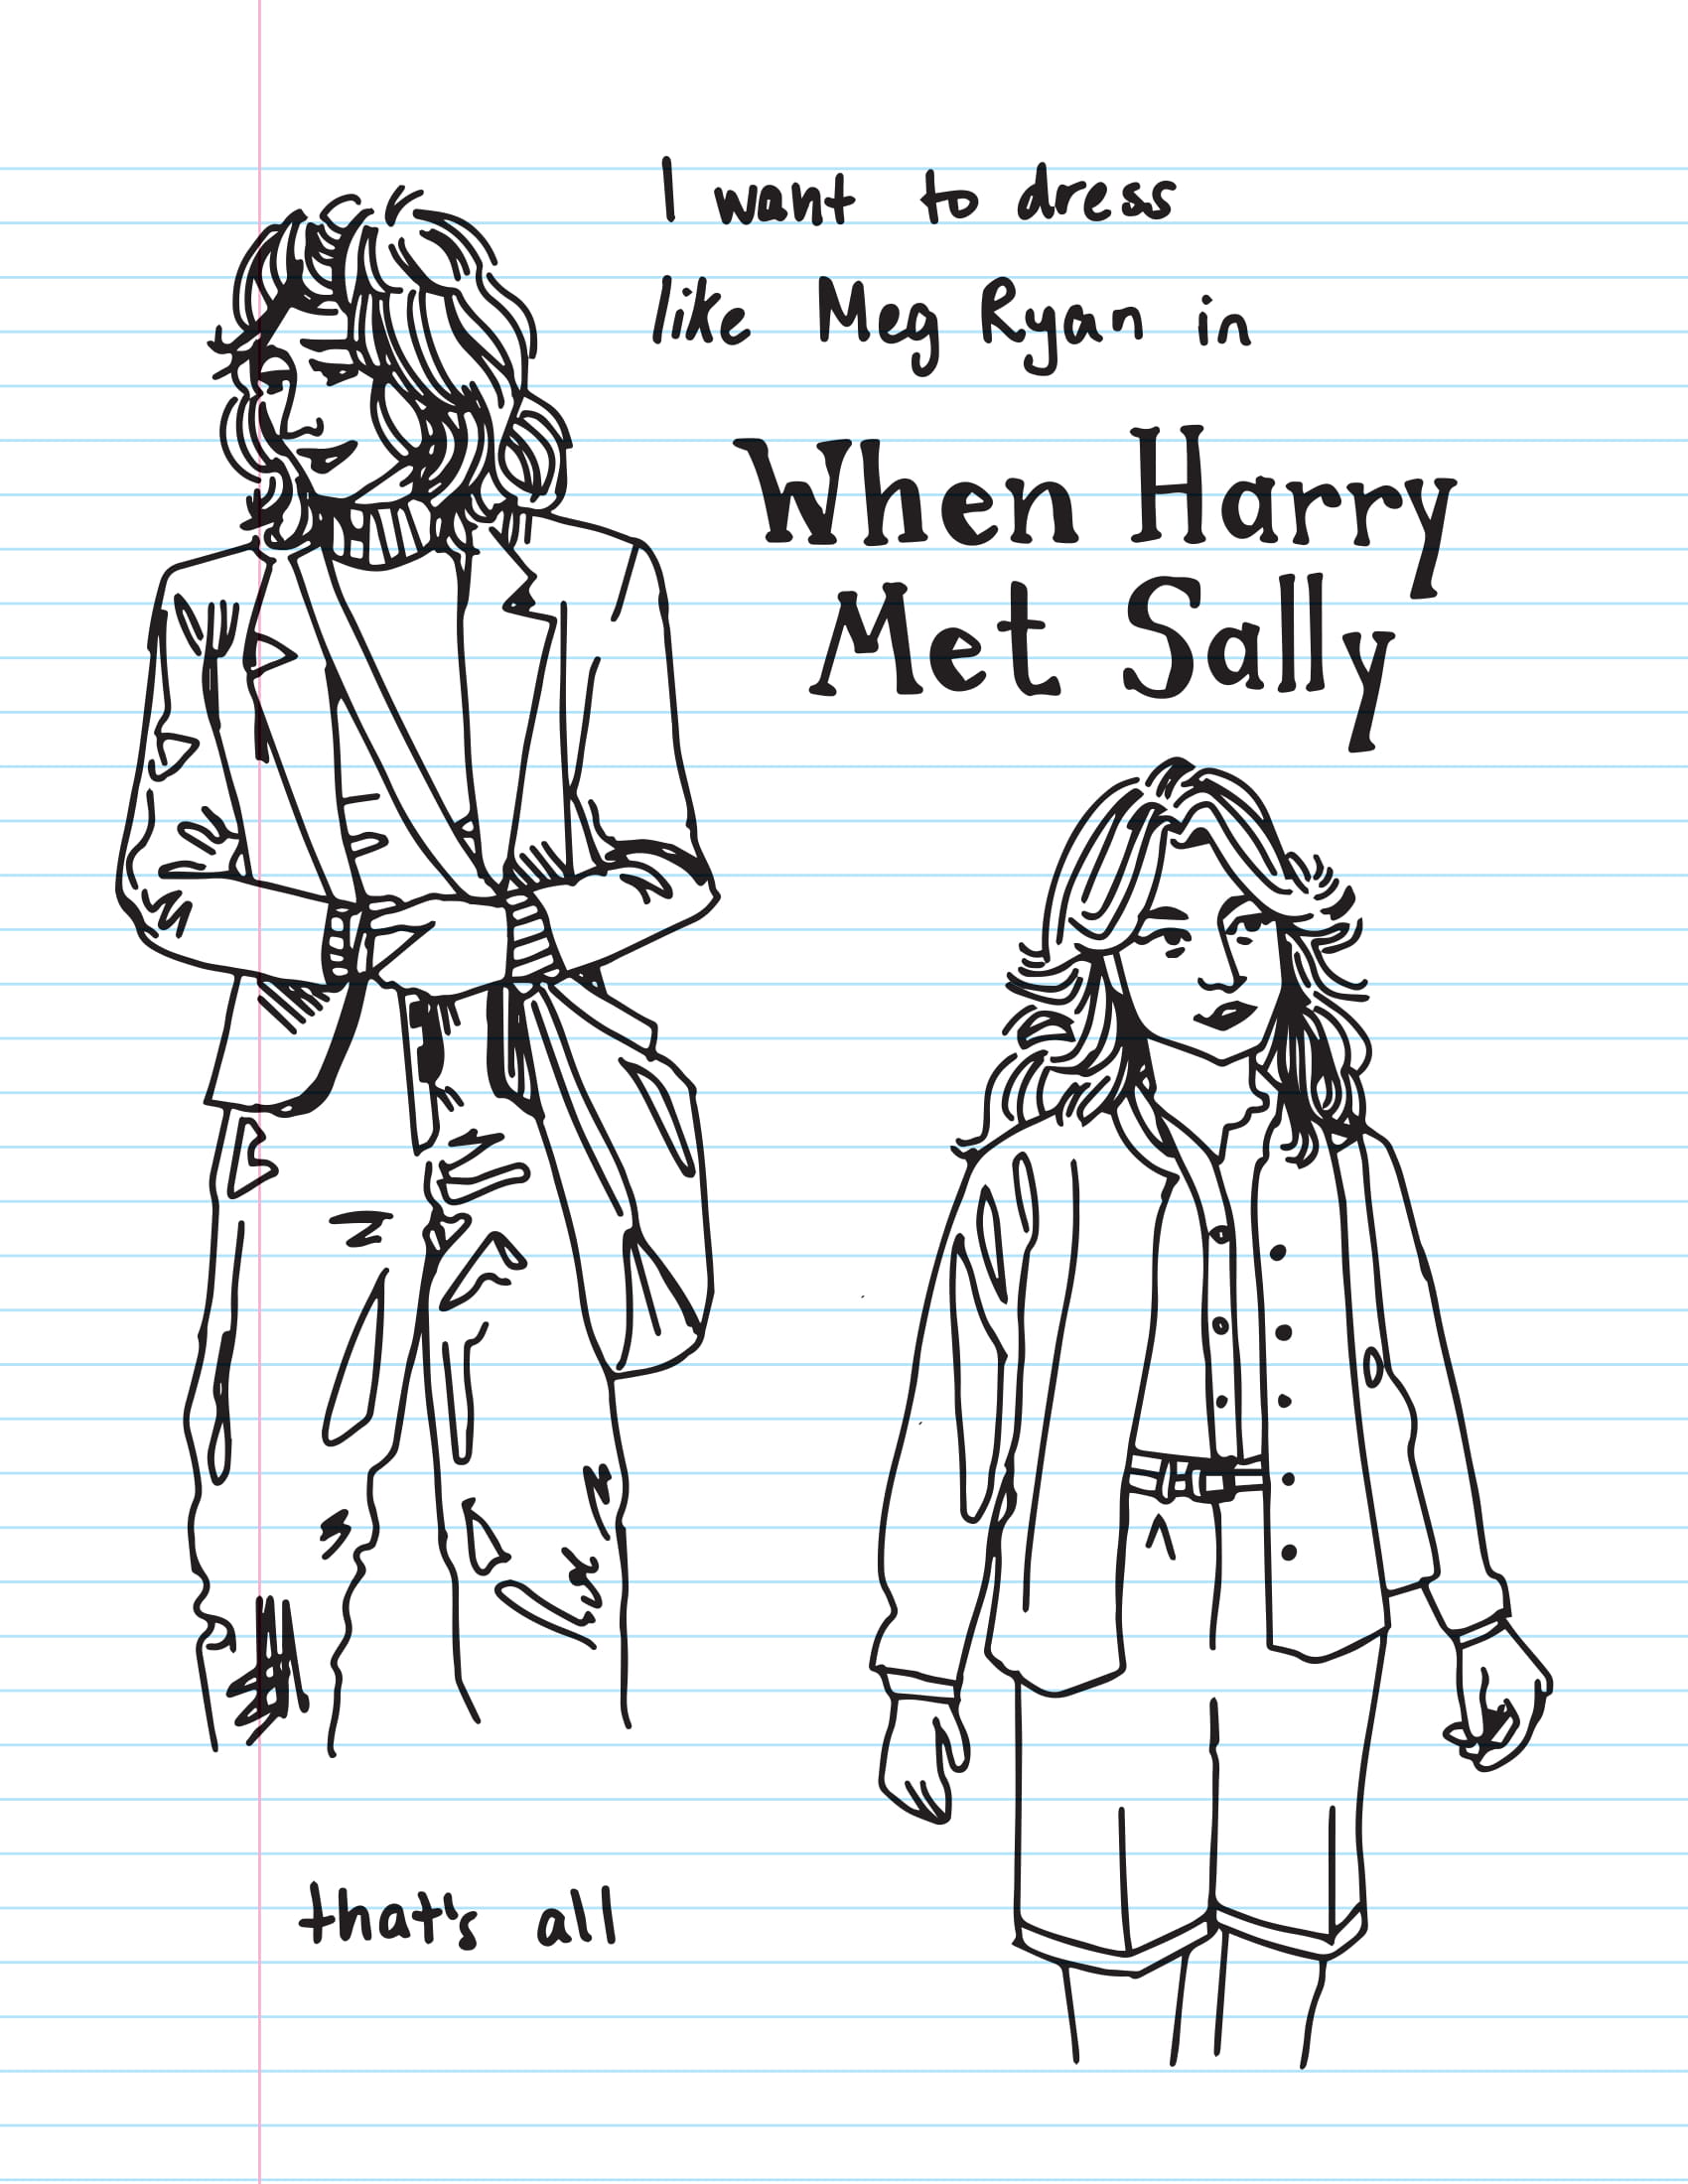 I want to dress
like Meg Ryan in
When Harry
Met Sally
that's all